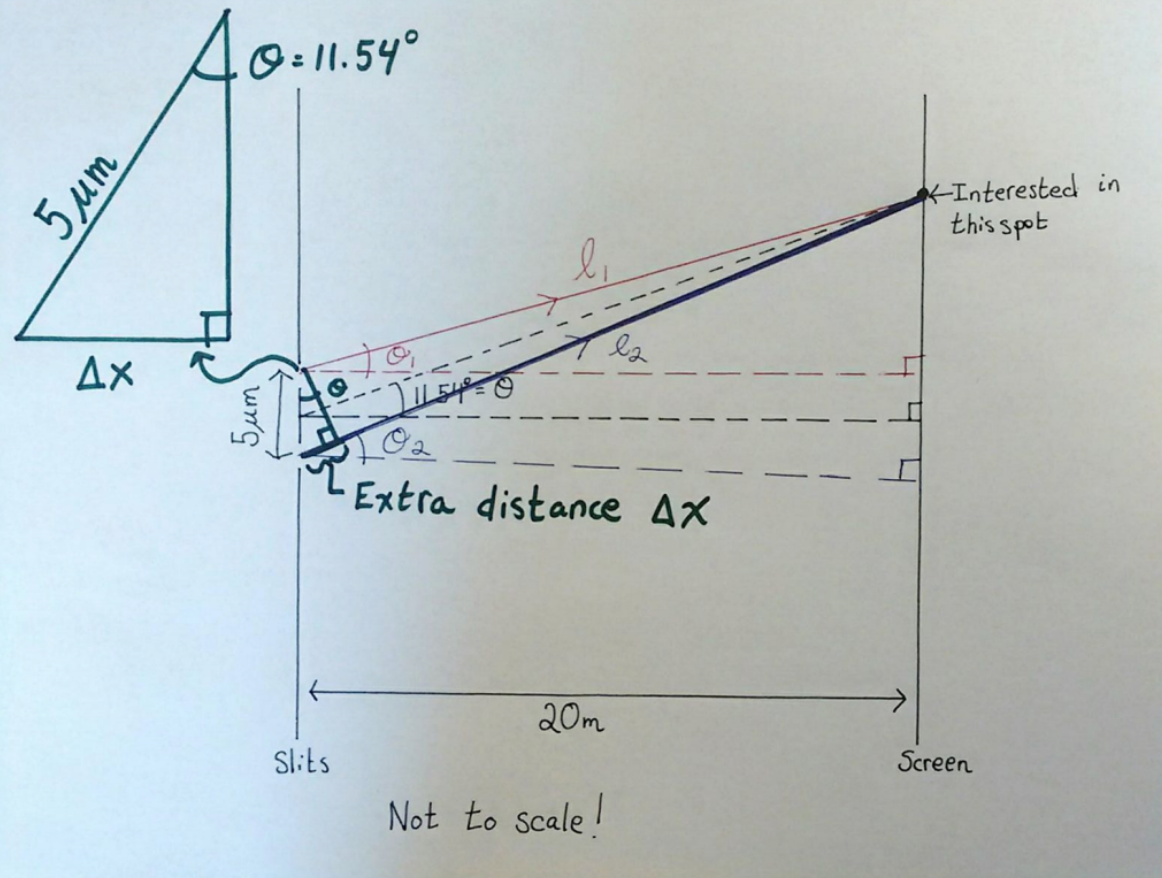 θ = 11.54°
5 μm
Δx
Interested in
this spot
l₁
θ₁
l₂
θ
11.54° = θ
5μm
θ₂
Extra distance Δx
20m
Slits
Screen
Not to scale!